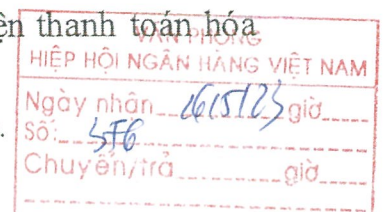 ện thanh toán hóa
VĂN PHÒNG
HIỆP HỘI NGÂN HÀNG VIỆT NAM
Ngày nhận 16/5/23 giờ
Số:
Chuyển/trả giờ